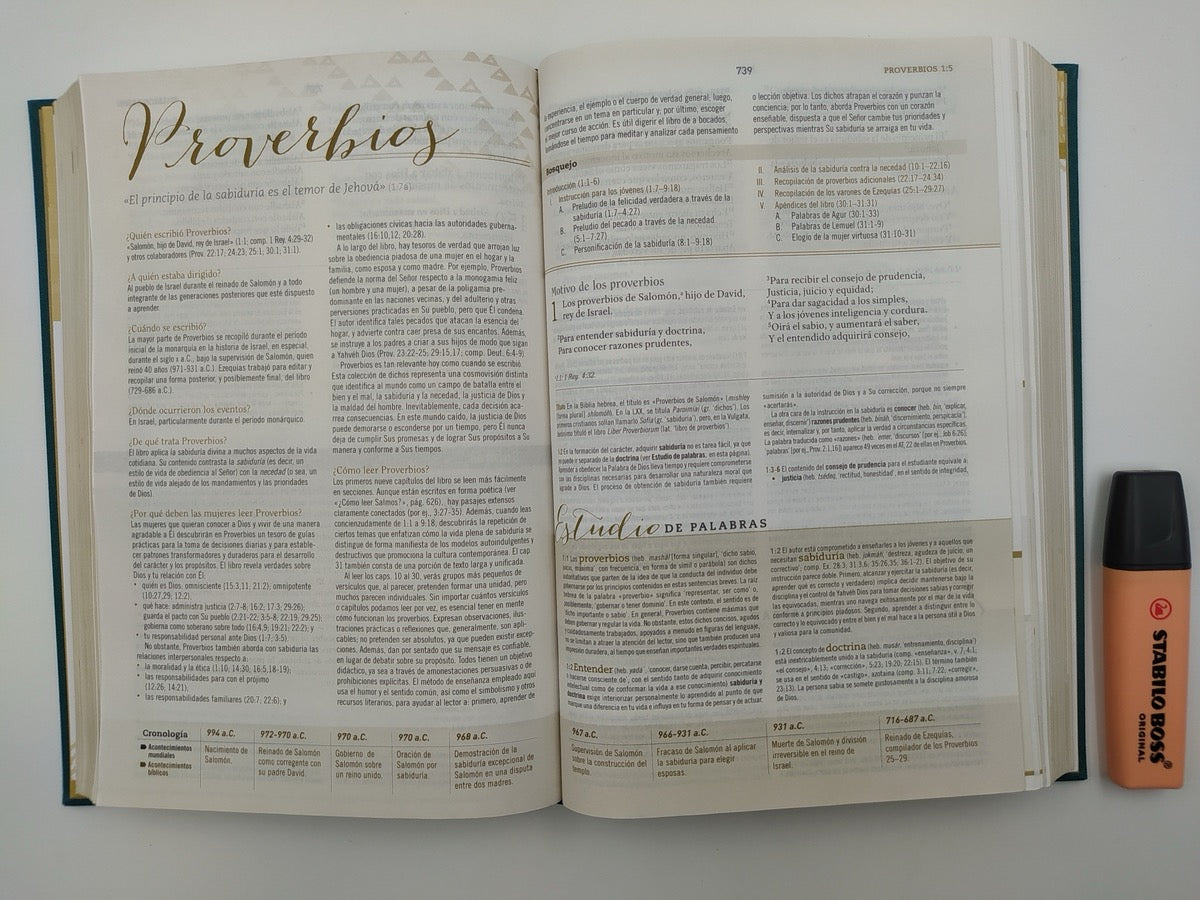 Proverbios
«El principio de la sabiduría es el temor de Jehová» (1:7a)
¿Quién escribió Proverbios?
«Salomón, hijo de David, rey de Israel» (1:1; comp. 1 Rey. 4:29-32)
y otros colaboradores (Prov. 22:17; 24:23; 25:1; 30:1; 31:1).
¿A quién estaba dirigido?
Al pueblo de Israel durante el reinado de Salomón y a todo
integrante de las generaciones posteriores que esté dispuesto
a aprender.
¿Cuándo se escribió?
La mayor parte de Proverbios se recopiló durante el período
inicial de la monarquía en la historia de Israel, en especial,
durante el siglo X A.C., bajo la supervisión de Salomón, quien
reinó 40 años (971-931 a.C.). Ezequías trabajó para editar y
recopilar una forma posterior, y posiblemente final, del libro
(729-686 a.C.).
¿Dónde ocurrieron los eventos?
En Israel, particularmente durante el período monárquico.
¿De qué trata Proverbios?
El libro aplica la sabiduría divina a muchos aspectos de la vida
cotidiana. Su contenido contrasta la sabiduría (es decir, un
estilo de vida de obediencia al Señor) con la necedad (o sea, un
estilo de vida alejado de los mandamientos y las prioridades
de Dios).
¿Por qué deben las mujeres leer Proverbios?
Las mujeres que quieran conocer a Dios y vivir de una manera
agradable a Él descubrirán en Proverbios un tesoro de guías
prácticas para la toma de decisiones diarias y para estable-
cer patrones transformadores y duraderos para el desarrollo
del carácter y los propósitos. El libro revela verdades sobre
Dios y tu relación con Él:
• quién es Dios, omnisciente (15:3,11; 21:2); omnipotente
(10:27,29; 12:2),
• qué hace: administra justicia (2:7-8; 16:2; 17:3; 29:26);
guarda el pacto con Su pueblo (2:21-22; 3:5-8; 22:19; 29:25);
gobierna como soberano sobre todo (16:4,9; 19:21; 22:2); y
• tu responsabilidad personal ante Dios (1:7; 3:5).
No obstante, Proverbios también aborda con sabiduría las
relaciones interpersonales respecto a:
• la moralidad y la ética (1:10; 14:30; 16:5,18-19);
• las responsabilidades para con el prójimo
(12:26; 14:21),
• las responsabilidades familiares (20:7; 22:6); y
• las obligaciones cívicas hacia las autoridades guberna-
mentales (16:10,12; 20:28).
A lo largo del libro, hay tesoros de verdad que arrojan luz
sobre la obediencia piadosa de una mujer en el hogar y la
familia, como esposa y como madre. Por ejemplo, Proverbios
defiende la norma del Señor respecto a la monogamia feliz
(un hombre y una mujer), a pesar de la poligamia pre-
dominante en las naciones vecinas, y del adulterio y otras
perversiones practicadas en Su pueblo, pero que Él condena.
El autor identifica tales pecados que atacan la esencia del
hogar, y advierte contra caer presa de sus encantos. Además,
se instruye a los padres a criar a sus hijos de modo que sigan
a Yahvéh Dios (Prov. 23:22-25; 29:15,17; comp. Deut. 6:4-9).
Proverbios es tan relevante hoy como cuando se escribió.
Esta colección de dichos representa una cosmovisión distinta
que identifica al mundo como un campo de batalla entre el
bien y el mal, la sabiduría y la necedad, la justicia de Dios y
la maldad del hombre. Inevitablemente, cada decisión aca-
rrea consecuencias. En este mundo caído, la justicia de Dios
puede demorarse o esconderse por un tiempo, pero Él nunca
deja de cumplir Sus promesas y de lograr Sus propósitos a Su
manera y conforme a Sus tiempos.
¿Cómo leer Proverbios?
Los primeros nueve capítulos del libro se leen más fácilmente
en secciones. Aunque están escritos en forma poética (ver
«¿Cómo leer Salmos?», pág. 626), hay pasajes extensos
claramente conectados (por ej., 3:27-35). Además, cuando leas
concienzudamente de 1:1 a 9:18, descubrirás la repetición de
ciertos temas que enfatizan cómo la vida plena de sabiduría se
distingue de forma manifiesta de los modelos autoindulgentes y
destructivos que promociona la cultura contemporánea. El cap
31 también consta de una porción de texto larga y unificada.
Al leer los caps. 10 al 30, verás grupos más pequeños de
versículos que, al parecer, pretenden formar una unidad, pero
muchos parecen individuales. Sin importar cuántos versículos
o capítulos podamos leer por vez, es esencial tener en mente
cómo funcionan los proverbios. Expresan observaciones, ilus-
traciones prácticas o reflexiones que, generalmente, son apli-
cables; no pretenden ser absolutos, ya que pueden existir excep-
ciones. Además, dan por sentado que su mensaje es confiable,
en lugar de debatir sobre su propósito. Todos tienen un objetivo
didáctico, ya sea a través de amonestaciones persuasivas o de
prohibiciones explícitas. El método de enseñanza empleado aquí
usa el humor y el sentido común, así como el simbolismo y otros
recursos literarios, para ayudar al lector a: primero, aprender de
Cronología
Acontecimientos mundiales
Acontecimientos bíblicos
994 a.C.
Nacimiento de
Salomón.
972-970 a.C.
Reinado de Salomón
como corregente con
su padre David.
970 a.C.
Gobierno de
Salomón sobre
un reino unido.
970 a.C.
Oración de
Salomón por
sabiduría.
968 a.C.
Demostración de la
sabiduría excepcional de
Salomón en una disputa
entre dos madres.
739
PROVERBIOS 1:5
experiencia, el ejemplo o el cuerpo de verdad general; luego,
concentrarse en un tema en particular y; por último, escoger
mejor curso de acción. Es útil digerir el libro de a bocados,
tomándose el tiempo para meditar y analizar cada pensamiento
o lección objetiva. Los dichos atrapan el corazón y punzan la
conciencia; por lo tanto, aborda Proverbios con un corazón
enseñable, dispuesta a que el Señor cambie tus prioridades y
perspectivas mientras Su sabiduría se arraiga en tu vida.
Bosquejo
Introducción (1:1-6)
I. Instrucción para los jóvenes (1:7–9:18)
A. Preludio de la felicidad verdadera a través de la
sabiduría (1:7–4:27)
B. Preludio del pecado a través de la necedad
(5:1–7:27)
C. Personificación de la sabiduría (8:1–9:18)
II. Análisis de la sabiduría contra la necedad (10:1–22:16)
III. Recopilación de proverbios adicionales (22:17–24:34)
IV. Recopilación de los varones de Ezequías (25:1–29:27)
V. Apéndices del libro (30:1–31:31)
A. Palabras de Agur (30:1-33)
B. Palabras de Lemuel (31:1-9)
C. Elogio de la mujer virtuosa (31:10-31)
Motivo de los proverbios
1 Los proverbios de Salomón,ª hijo de David,
rey de Israel.
²Para entender sabiduría y doctrina,
Para conocer razones prudentes,
³Para recibir el consejo de prudencia,
Justicia, juicio y equidad;
⁴Para dar sagacidad a los simples,
Y a los jóvenes inteligencia y cordura.
⁵Oirá el sabio, y aumentará el saber,
Y el entendido adquirirá consejo,
1:1: 1 Rey. 4:32.
Título En la Biblia hebrea, el título es «Proverbios de Salomón» (mishley
[forma plural] shlomoh). En la LXX, se titula Paroimiai (gr. 'dichos'). Los
primeros cristianos solían llamarlo Sofía (gr. 'sabiduría'), pero, en la Vulgata,
Jerónimo tituló el libro Liber Proverbiorum (lat. 'libro de proverbios').
1:2 En la formación del carácter, adquirir sabiduría no es tarea fácil, ya que
puede ir separado de la doctrina (ver Estudio de palabras, en esta página).
Aprender a obedecer la Palabra de Dios lleva tiempo y requiere comprometerse
con las disciplinas necesarias para desarrollar una naturaleza moral que
agrade a Dios. El proceso de obtención de sabiduría también requiere
sumisión a la autoridad de Dios y a Su corrección, porque no siempre
«acertarás».
La otra cara de la instrucción en la sabiduría es conocer (heb. bin, 'explicar,
enseñar, discernir') razones prudentes (heb. binah, 'discernimiento, perspicacia'),
es decir, internalizar y, por tanto, aplicar la verdad a circunstancias específicas.
La palabra traducida como «razones» (heb. 'emer, 'discursos' [por ej., Job 6:26];
'palabras' [por ej., Prov. 2:1,16]) aparece 49 veces en el AT, 22 de ellas en Proverbios.
1:3-6 El contenido del consejo de prudencia para el estudiante equivale a:
• justicia (heb. tsédeq, rectitud, honestidad' en el sentido de integridad,
Estudio DE PALABRAS
1:1 Los proverbios (heb. mashál [forma singular], 'dicho sabio,
juicio, máxima', con frecuencia, en forma de símil o parábola) son dichos
autoritativos que parten de la idea de que la conducta del individuo debe
gobernarse por los principios contenidos en estas sentencias breves. La raíz
hebrea de la palabra «proverbio» significa 'representar, ser como' o,
posiblemente, 'gobernar o tener dominio'. En este contexto, el sentido es de
dicho importante o sabio'. En general, Proverbios contiene máximas que
deben gobernar y regular la vida. No obstante, estos dichos concisos, agudos
y cuidadosamente trabajados, apoyados a menudo en figuras del lenguaje,
no se limitan a atraer la atención del lector, sino que también producen una
impresión duradera, al tiempo que enseñan importantes verdades espirituales.
1:2 Entender (heb. yadá', 'conocer, darse cuenta, percibir, percatarse
o hacerse consciente de', con el sentido tanto de adquirir conocimiento
intelectual como de conformar la vida a ese conocimiento) sabiduría y
doctrina exige interiorizar personalmente lo aprendido al punto de que
marque una diferencia en tu vida e influya en tu forma de pensar y de actuar.
1:2 El autor está comprometido a enseñarles a los jóvenes y a aquellos que
necesitan sabiduría (heb. jokmáh, 'destreza, agudeza de juicio, un
correctivo'; comp. Ex. 28:3; 31:3,6; 35:26,35; 36:1-2). El objetivo de su
instrucción parece doble. Primero, alcanzar y ejercitar la sabiduría (es decir,
aprender qué es correcto y verdadero) implica decidir mantenerse bajo la
disciplina y el control de Yahvéh Dios para tomar decisiones sabias y corregir
las equivocadas, mientras uno navega exitosamente por el mar de la vida
conforme a principios piadosos. Segundo, aprender a distinguir entre lo
correcto y lo equivocado y entre el bien y el mal hace a la persona útil a Dios
y valiosa para la comunidad.
1:2 El concepto de doctrina (heb. musar, 'entrenamiento, disciplina')
está inextricablemente unido a la sabiduría (comp. «enseñanza», v. 7; 4:1;
«el consejo», 4:13; «corrección», 5:23; 19:20; 22:15). El término también
se usa en el sentido de «castigo», azotaina (comp. 3:11; 7:22; «corregir»,
23:13). La persona sabia se somete gustosamente a la disciplina amorosa
de Dios.
967 a.C.
Supervisión de Salomón
sobre la construcción del
templo.
966-931 a.C.
Fracaso de Salomón al aplicar
la sabiduría para elegir
esposas.
931 a.C.
Muerte de Salomón y división
irreversible en el reino de
Israel.
716-687 a.C.
Reinado de Ezequías,
compilador de los Proverbios
25–29.
STABILO BOSS®
ORIGINAL